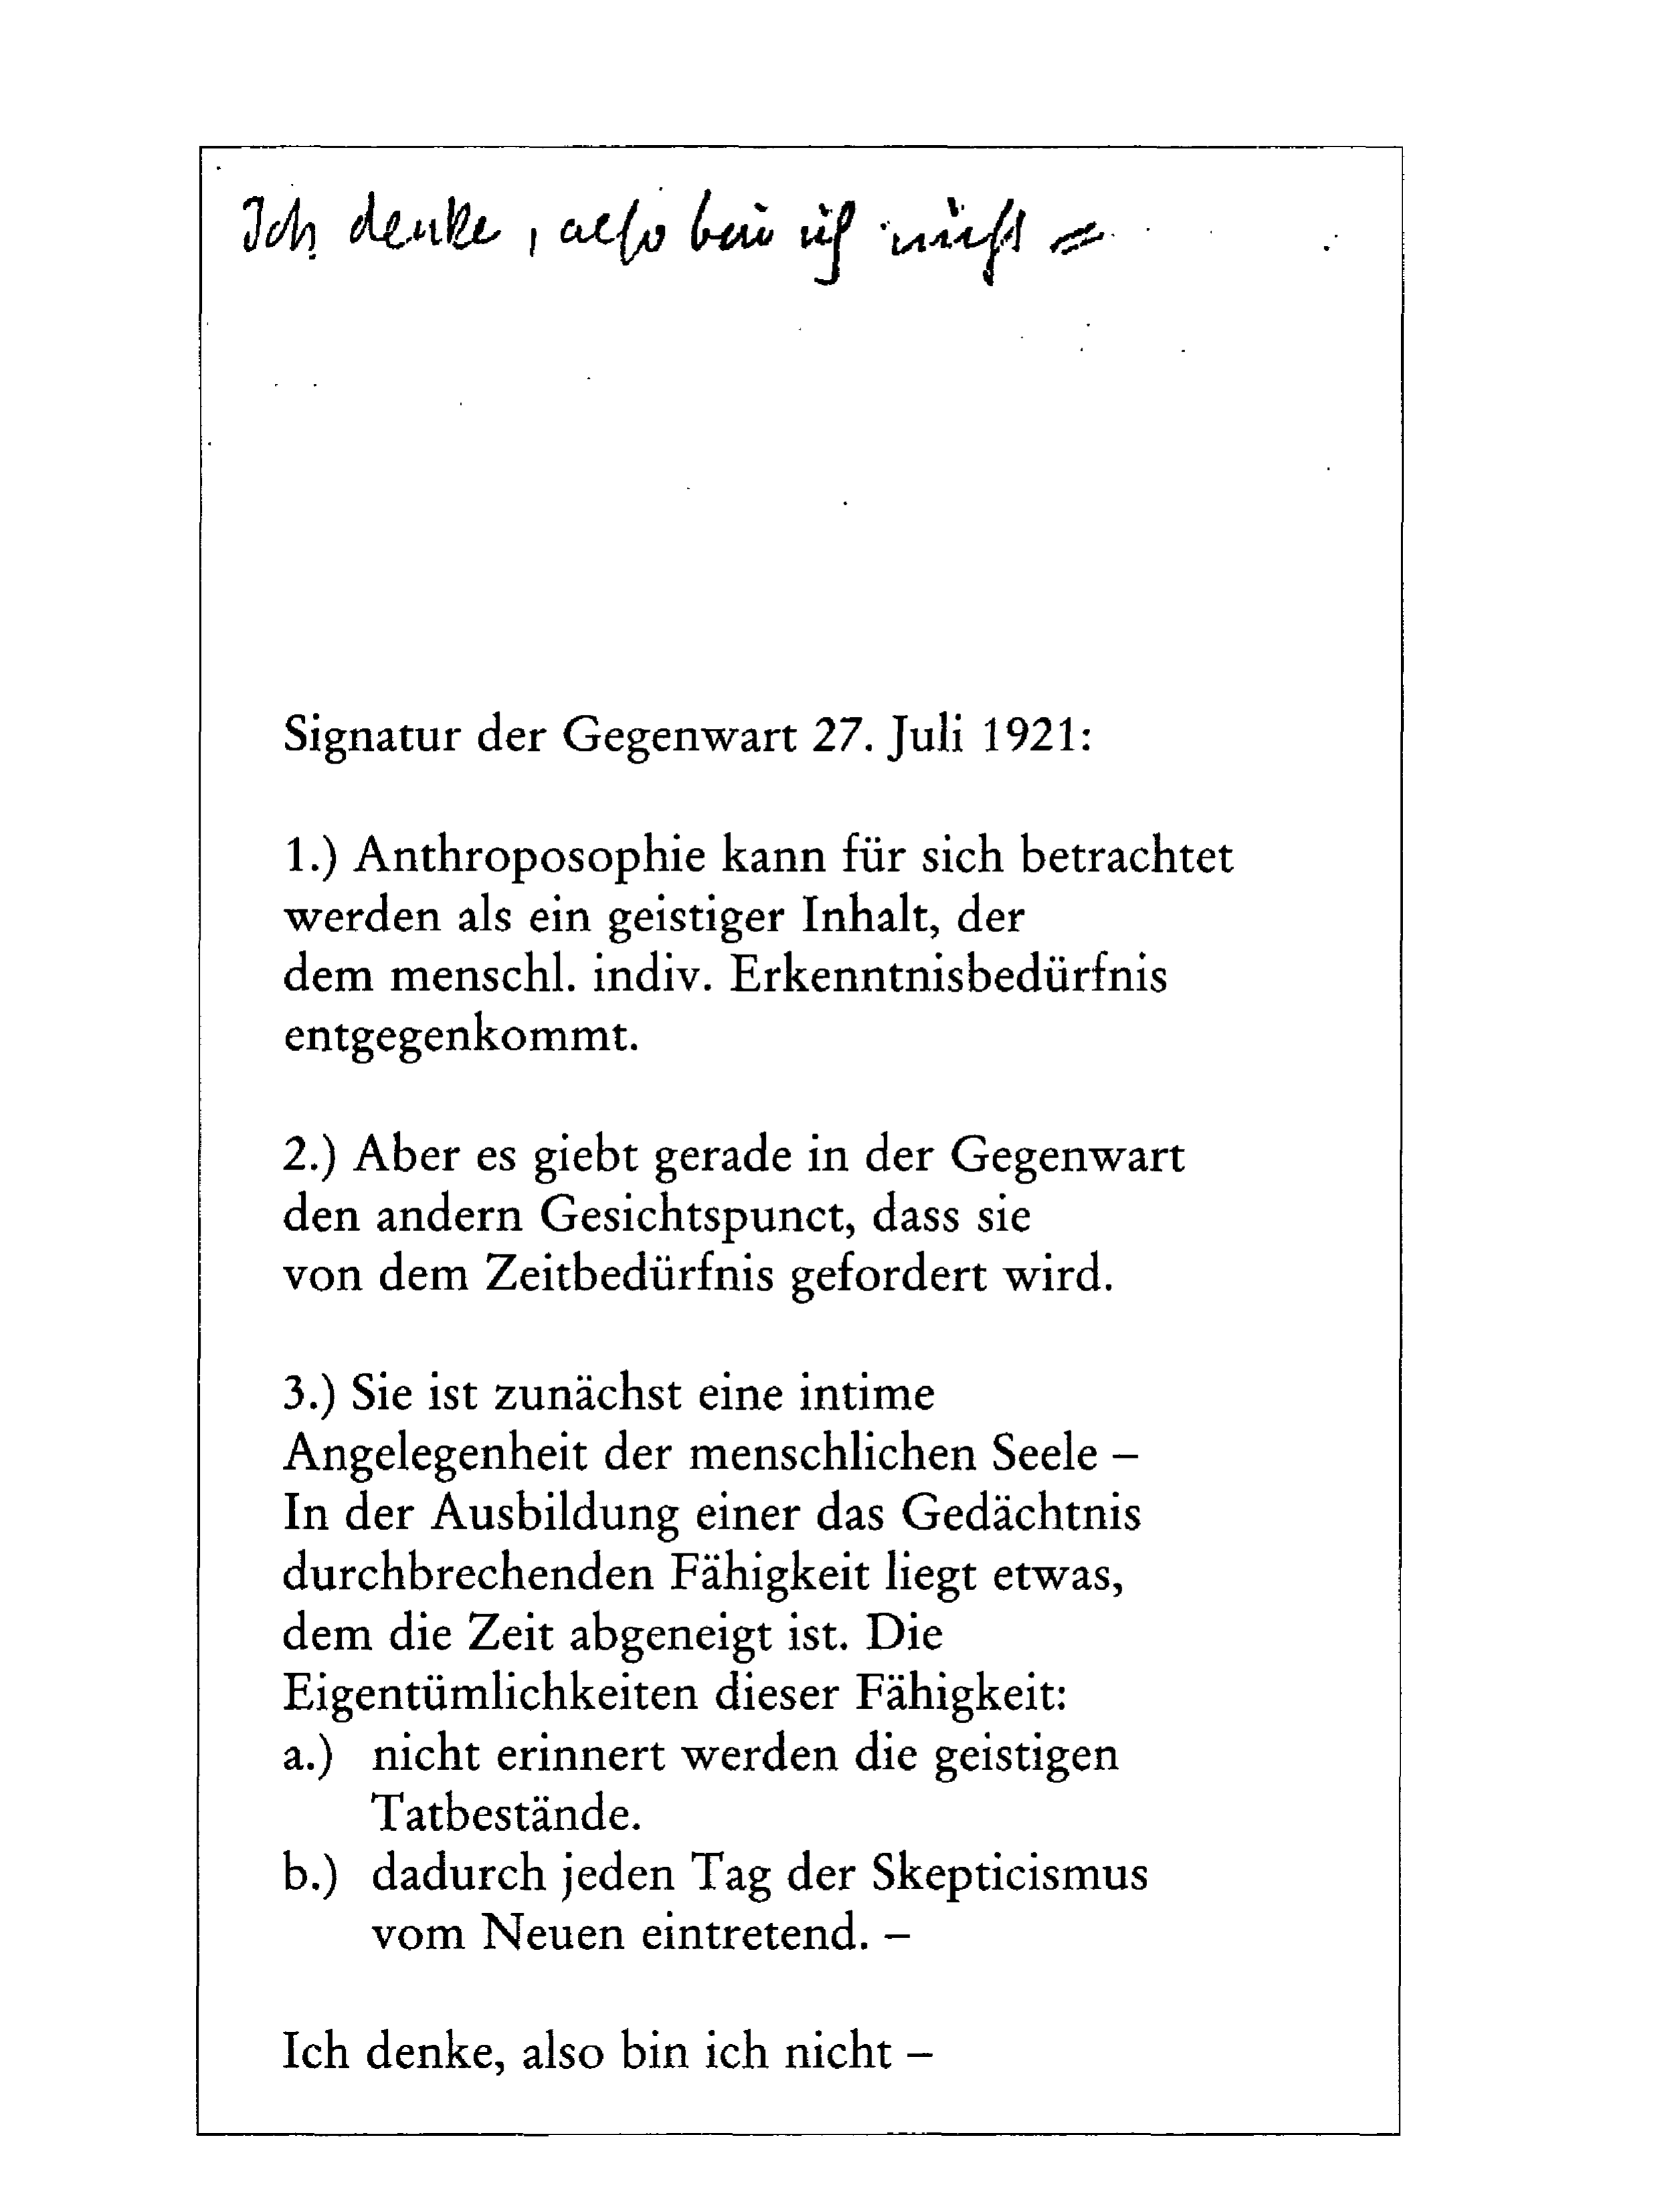 Ich denke, also bin ich nicht =
Signatur der Gegenwart 27. Juli 1921:
1.) Anthroposophie kann für sich betrachtet
werden als ein geistiger Inhalt, der
dem menschl. indiv. Erkenntnisbedürfnis
entgegenkommt.
2.) Aber es giebt gerade in der Gegenwart
den andern Gesichtspunct, dass sie
von dem Zeitbedürfnis gefordert wird.
3.) Sie ist zunächst eine intime
Angelegenheit der menschlichen Seele –
In der Ausbildung einer das Gedächtnis
durchbrechenden Fähigkeit liegt etwas,
dem die Zeit abgeneigt ist. Die
Eigentümlichkeiten dieser Fähigkeit:
a.) nicht erinnert werden die geistigen
Tatbestände.
b.) dadurch jeden Tag der Skepticismus
vom Neuen eintretend. –
Ich denke, also bin ich nicht –